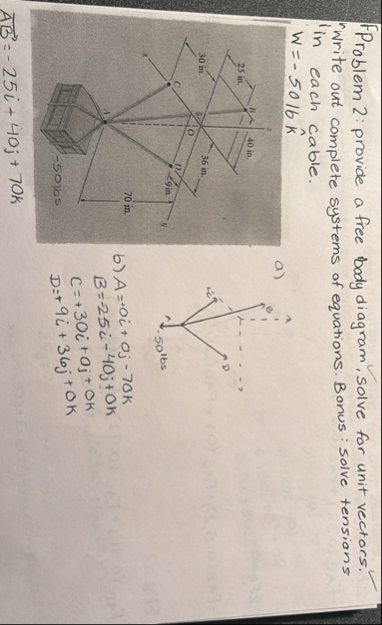 Problem 2: provide a free body diagram, solve for unit vectors.
write out complete systems of equations. Bonus: solve tensions
in each cable.
W = -50lb k̂
a)
25 in.
40 in.
30 in.
36 in.
B
C
O
D
9 in.
A
70 in.
x
y
z
-50lbs
B
D
A
50lbs
b) A=+0i+0j-70k
B=-25i-40j+0k
C=+30i+0j+0k
D=+9i+36j+0k
AB = -25i + 40j + 70k